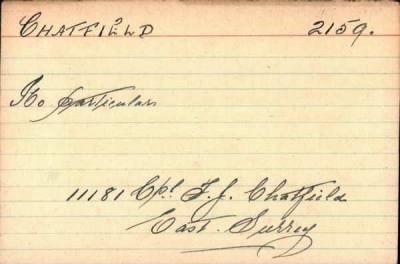 CHATFIELD 2159.
No particulars
11181 Cpl. F. J. Chatfield
East. Surrey